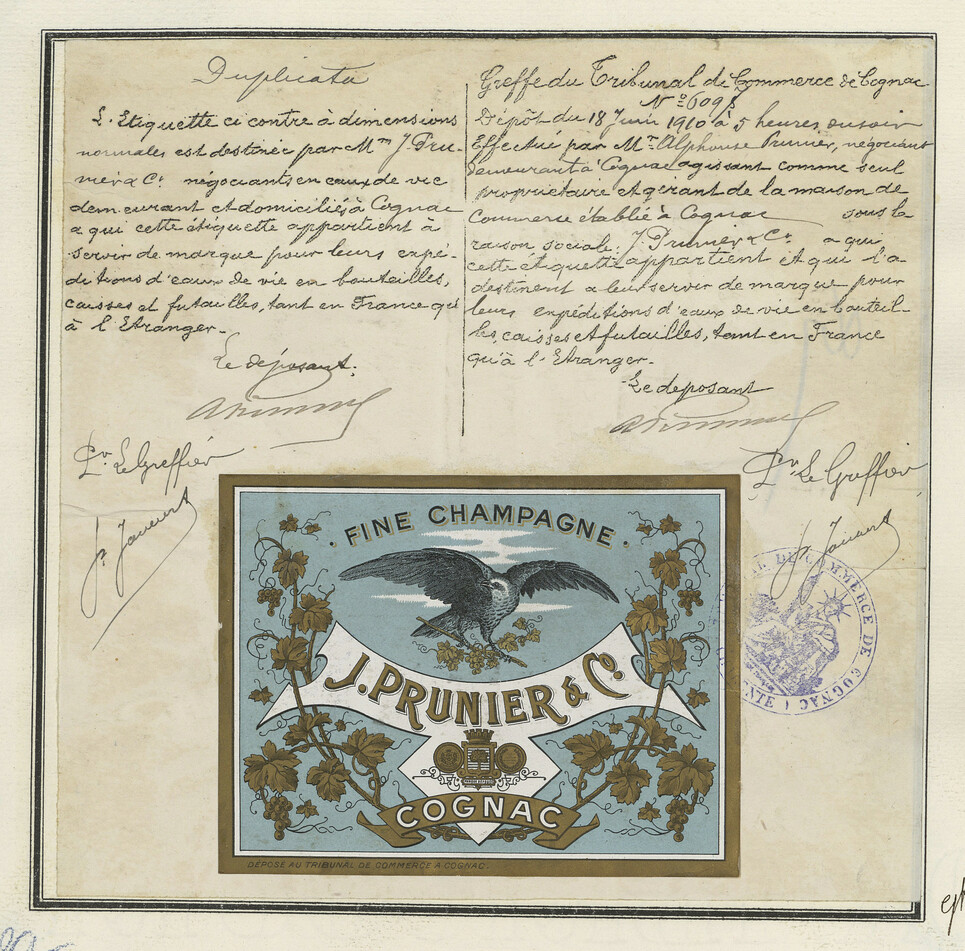 Duplicata
L'Etiquette ci contre à dimensions
normales est destinée par Mm J. Pru-
nier & Co négociants en eaux de vie
demeurant et domiciliés à Cognac
a qui cette étiquette appartient à
servir de marque pour leurs expé-
ditions d'eaux de vie en bouteilles,
caisses et futailles, tant en France qu'
à l'Etranger.
Le déposant.
Pr. Le Greffier
Greffe du Tribunal de Commerce de Cognac
No 6098
Dépôt du 18 Juin 1910 à 5 heures du soir
Effectué par Mr Alphonse Prunier, négociant
demeurant à Cognac agissant comme seul
propriétaire et gérant de la maison de
Commerce établie à Cognac sous la
raison sociale: J. Prunier & Co a qui
cette étiquette appartient et qui l'a
destinent a leur servir de marque pour
leurs expéditions d'eaux de vie en bouteil-
les, caisses et futailles, tant en France
qu'à l'Etranger.
Le deposant
Pr. Le Greffier
FINE CHAMPAGNE
J. PRUNIER & Co.
COGNAC
DÉPOSÉ AU TRIBUNAL DE COMMERCE A COGNAC.
DE COMMERCE DE COGNAC